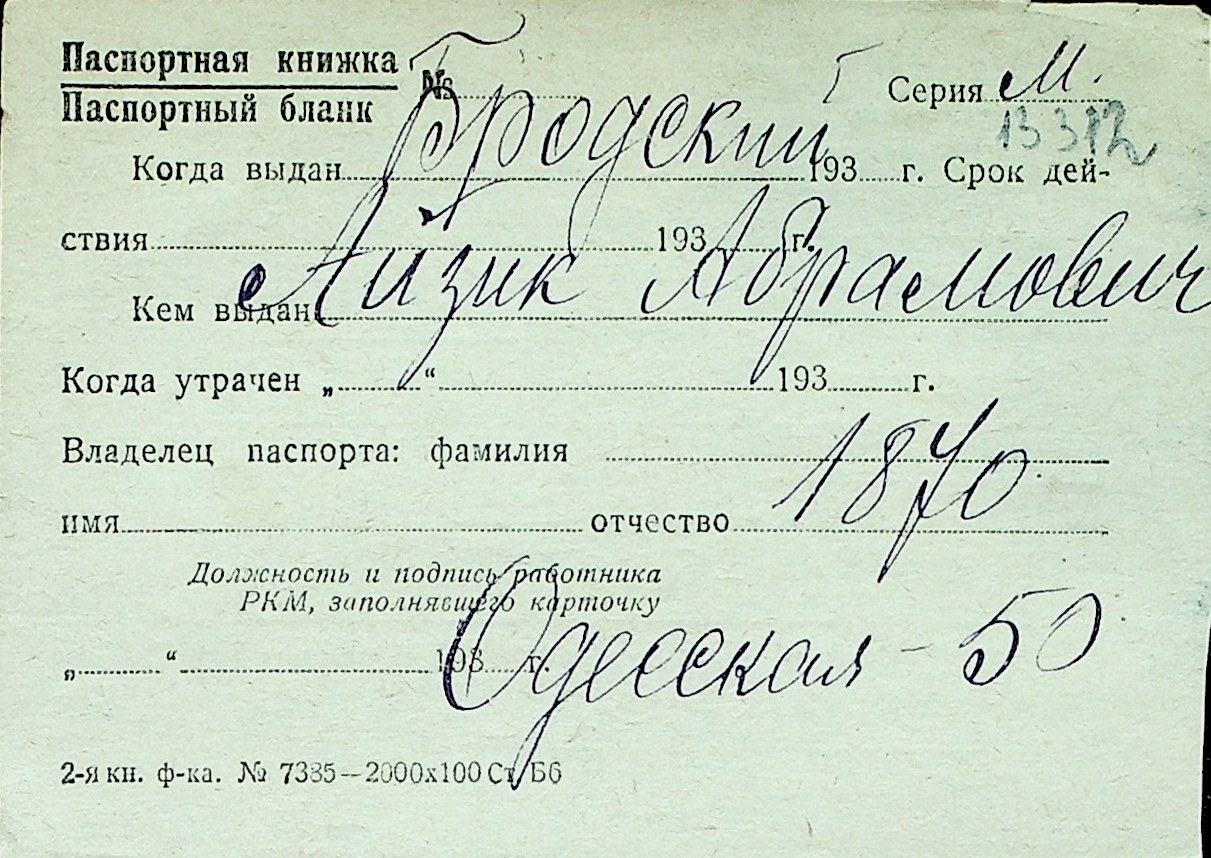 Паспортная книжка № Серия М.
Паспортный бланк
Бродский
Когда выдан 193 г. Срок дей-
ствия 193 г.
Айзик Абрамович
Кем выдан
Когда утрачен „ “ 193 г.
Владелец паспорта: фамилия
1870
имя отчество
Должность и подпись работника
РКМ, заполнявшего карточку
Одесская - 50
„ “ 193 г.
2-я кн. ф-ка. № 7385—2000х100 Ст. Б6